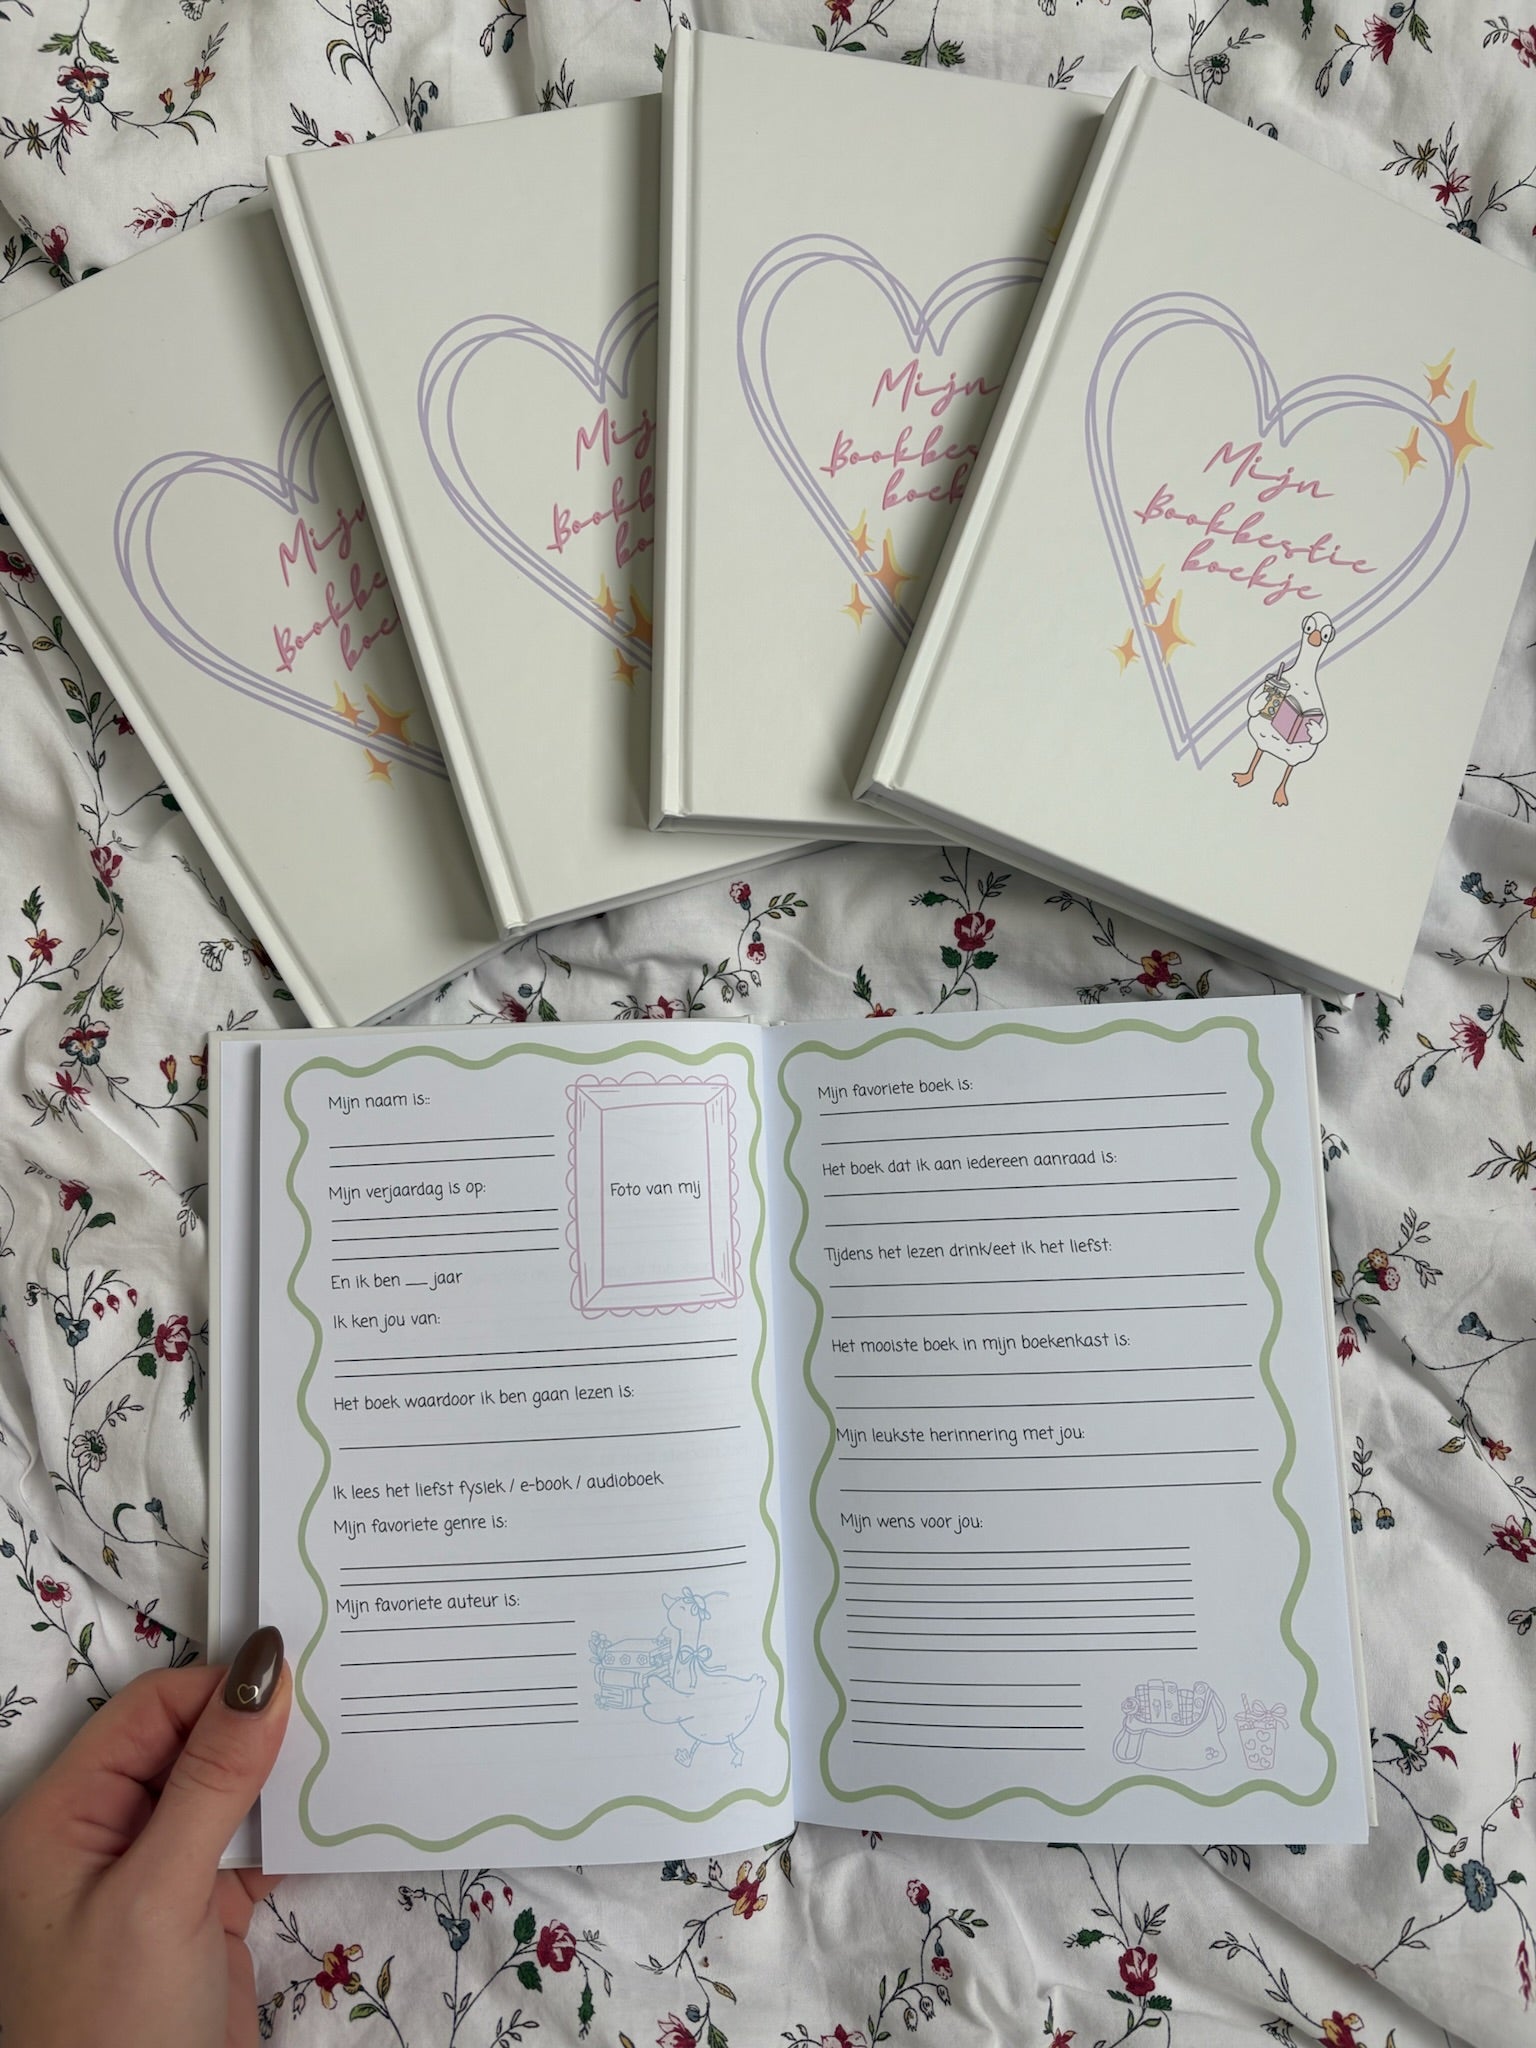 Mijn
Bookbe
boe
Mij
Bookb
bo
Mijn
Bookbes
boek
Mijn
Bookbestie
boekje
Mijn naam is::
Foto van mij
Mijn verjaardag is op:
En ik ben __ jaar
Ik ken jou van:
Het boek waardoor ik ben gaan lezen is:
Ik lees het liefst fysiek / e-book / audioboek
Mijn favoriete genre is:
Mijn favoriete auteur is:
Mijn favoriete boek is:
Het boek dat ik aan iedereen aanraad is:
Tijdens het lezen drink/eet ik het liefst:
Het mooiste boek in mijn boekenkast is:
Mijn leukste herinnering met jou:
Mijn wens voor jou: